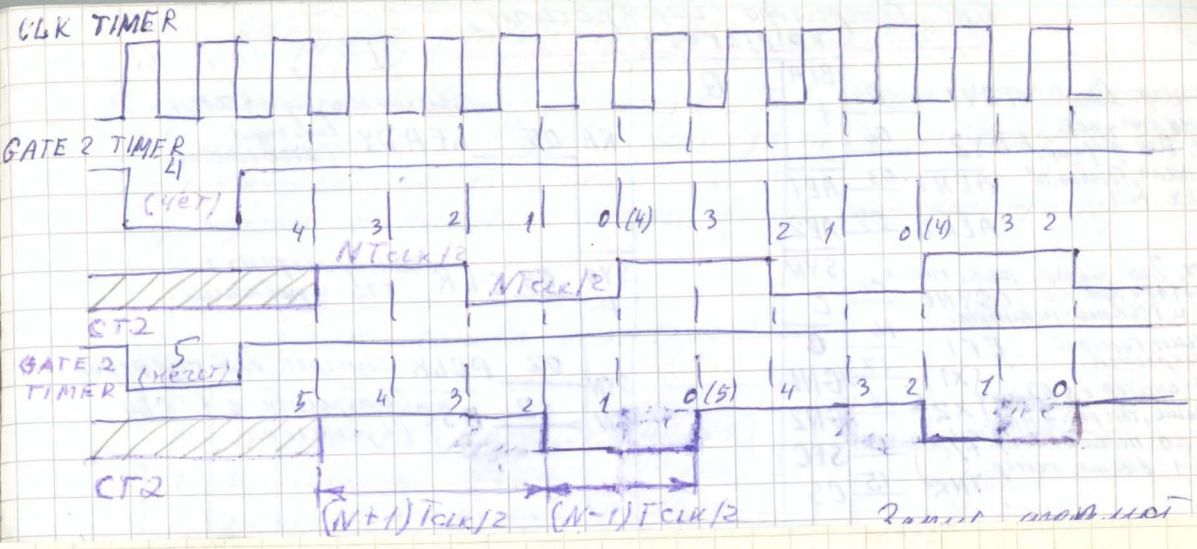 CLK TIMER
GATE 2 TIMER
4
(чёт)
4 3 2 1 0 (4) 3 2 1 0 (4) 3 2
NTclk/2
NTclk/2
CT2
GATE 2
TIMER
5
(нечет)
5 4 3 2 1 0 (5) 4 3 2 1 0
CT2
(N+1)Tclk/2 (N-1)Tclk/2